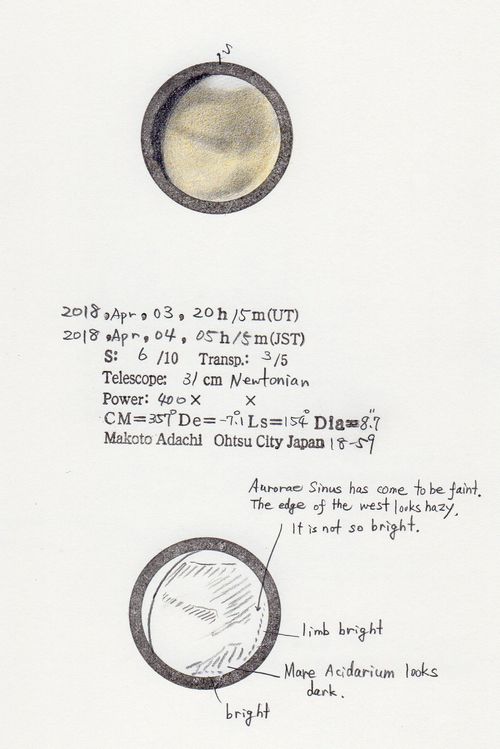 S
2018, Apr, 03, 20h 15m (UT)
2018, Apr, 04, 05h 15m (JST)
S: 6 /10 Transp.: 3/5
Telescope: 31 cm Newtonian
Power: 400× ×
CM=357° De=-7.°1 Ls=154° Dia=8.″7
Makoto Adachi Ohtsu City Japan 18-59
Aurorae Sinus has come to be faint.
The edge of the west looks hazy.
It is not so bright.
limb bright
Mare Acidarium looks
dark.
bright